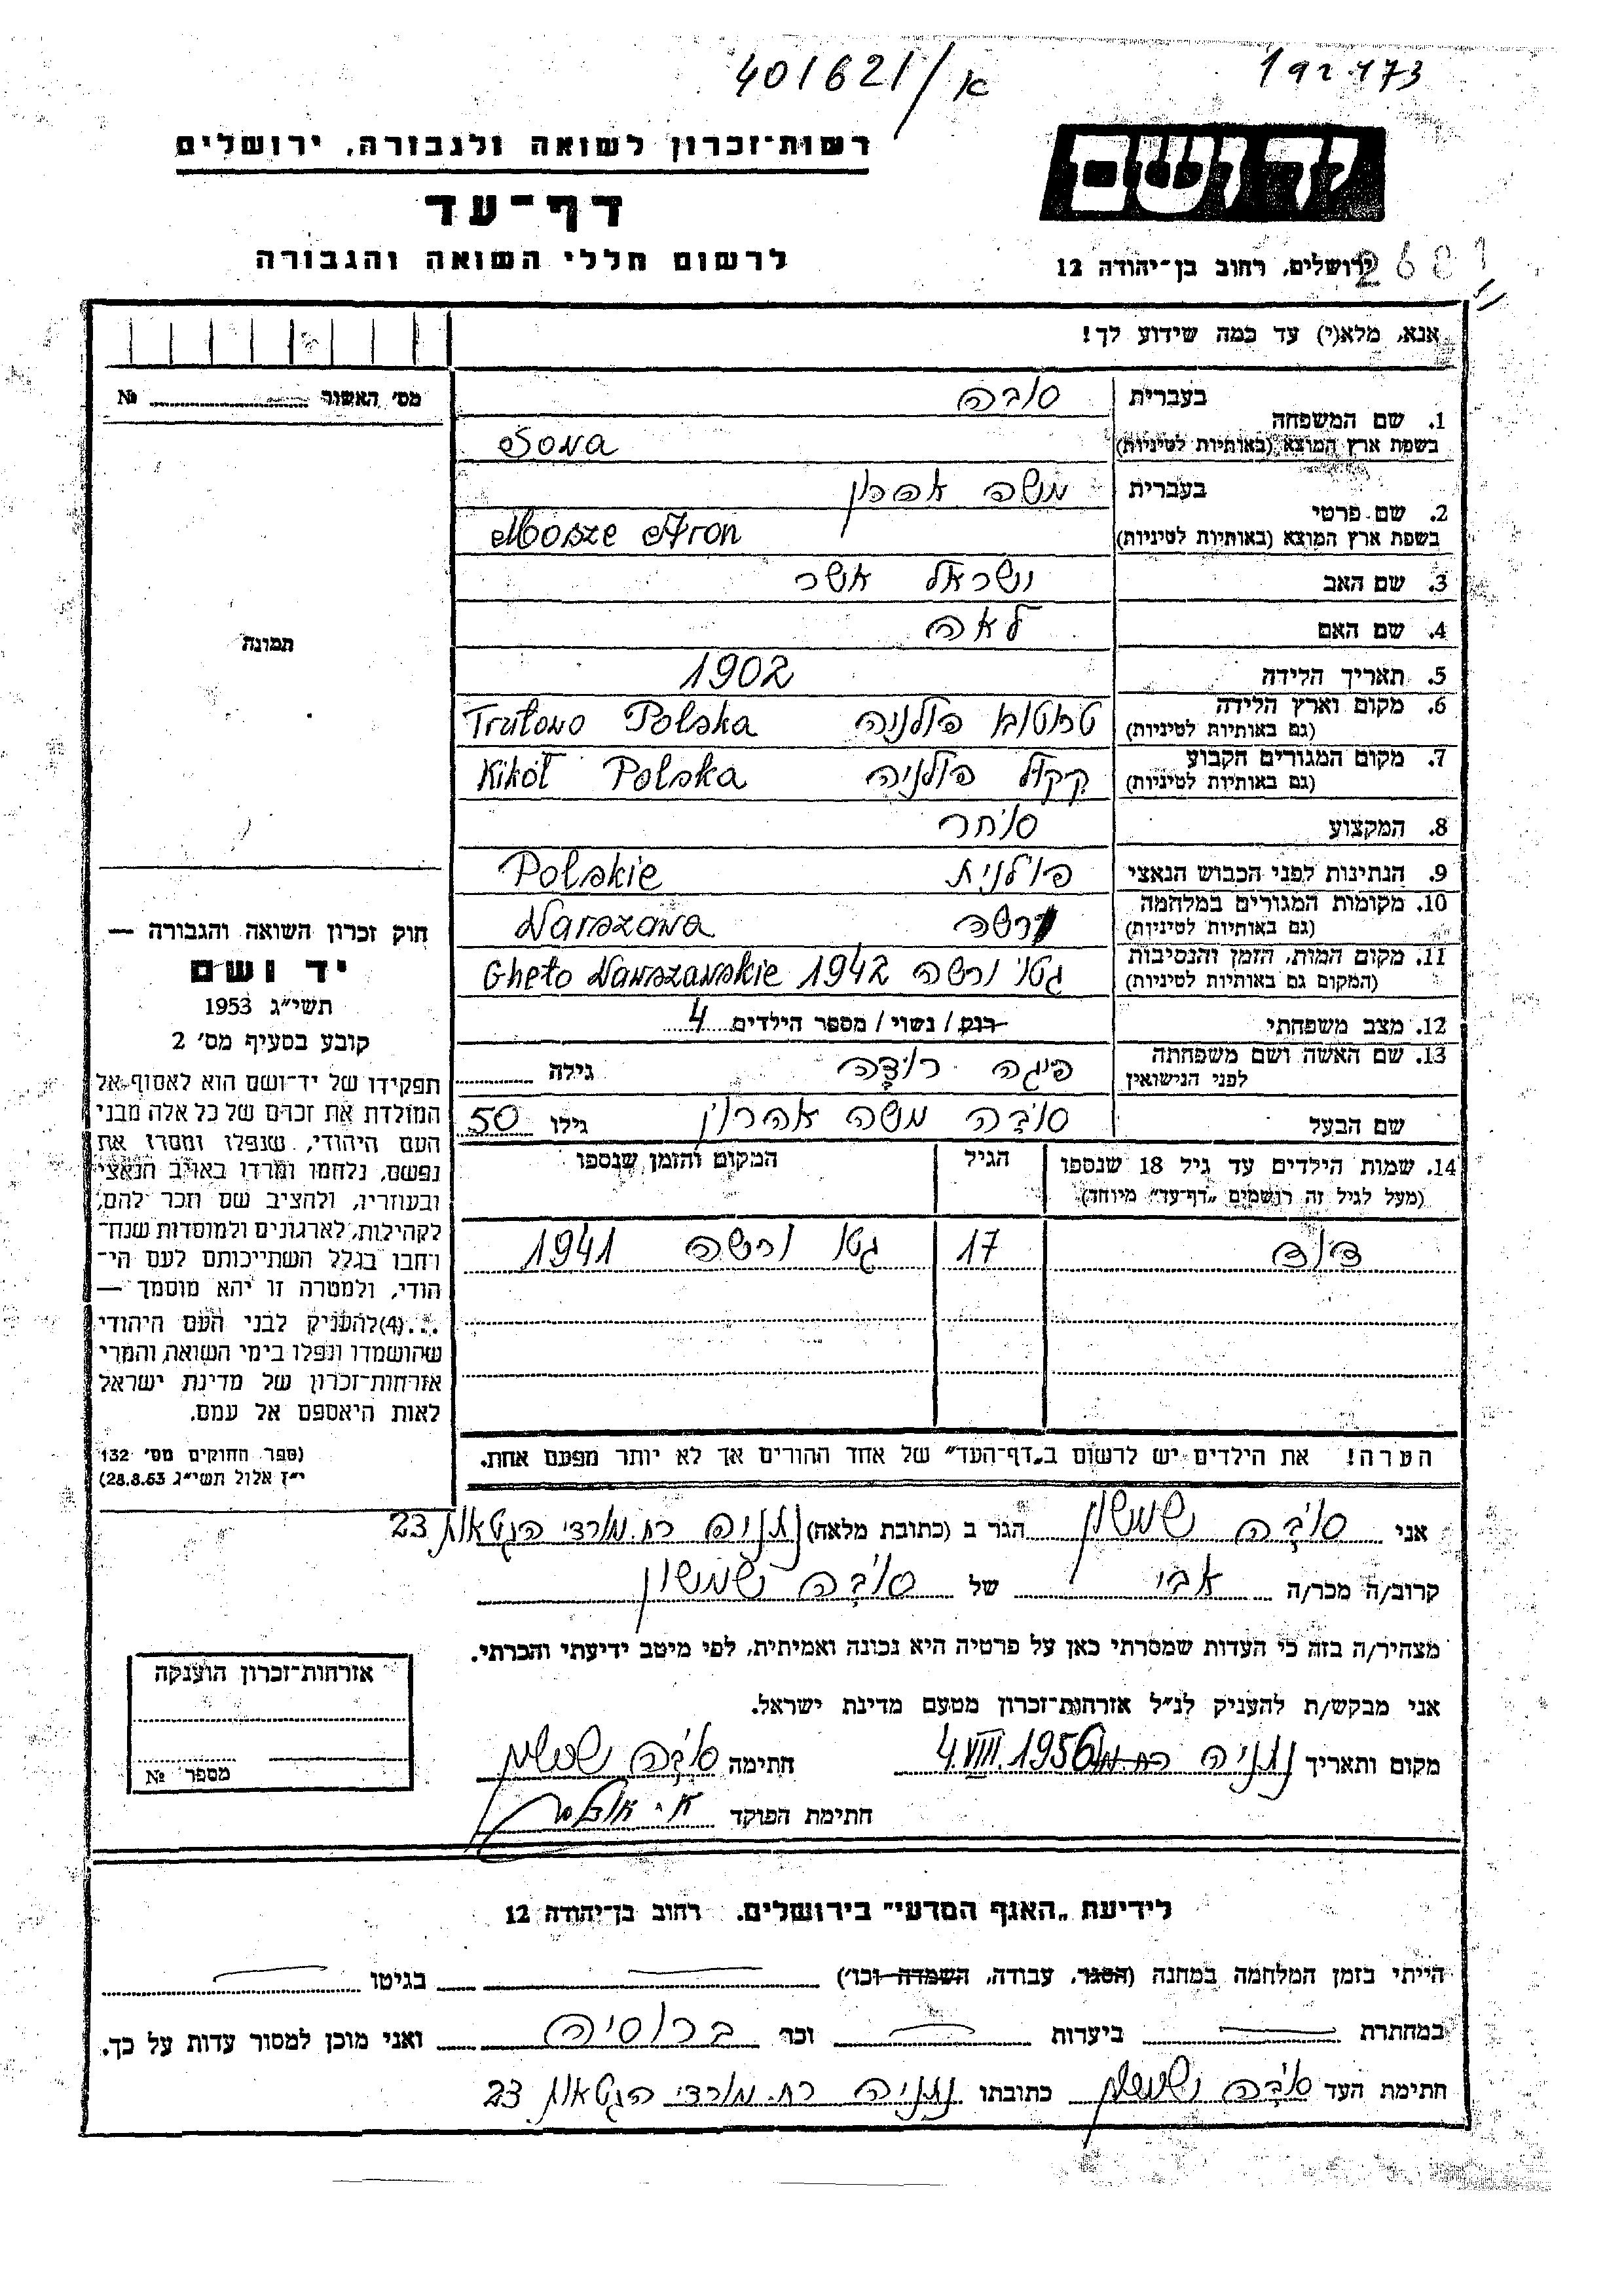 401621/א
192173
רשות־זכרון לשואה ולגבורה, ירושלים
ידושם
דף־עד
לרשום חללי השואה והגבורה
ירושלים, רחוב בן־יהודה 12
אנא, מלא(י) עד כמה שידוע לך!
מס׳ האשור № 
1. שם המשפחה
בעברית סובה
בשפת ארץ המוצא (באותיות לטיניות) Sowa
2. שם פרטי
בעברית משה אהרון
בשפת ארץ המוצא (באותיות לטיניות) Mosze Aron
3. שם האב ישראל אשר
4. שם האם לאה
תמונה
5. תאריך הלידה 1902
6. מקום וארץ הלידה
(גם באותיות לטיניות) טרוטובו פולניה Trutowo Polska
7. מקום המגורים הקבוע
(גם באותיות לטיניות) קיקול פולניה Kikół Polska
8. המקצוע סוחר
9. הנתינות לפני הכבוש הנאצי פולנית Polskie
10. מקומות המגורים במלחמה
(גם באותיות לטיניות) ורשה Warszawa
11. מקום המות, הזמן והנסיבות
(המקום גם באותיות לטיניות) גטו ורשה 1942 Gheto Warszawskie
12. מצב משפחתי רוק / נשוי / מספר הילדים 4
13. שם האשה ושם משפחתה
לפני הנישואין פיגה גילה
שם הבעל סובה משה אהרון גילו 50
14. שמות הילדים עד גיל 18 שנספו
(מעל לגיל זה רושמים „דף־עד״ מיוחד)
הגיל
המקום והזמן שנספו
דוד 17 גטו ורשה 1941
הערה! את הילדים יש לרשום ב„דף־העד״ של אחד ההורים אך לא יותר מפעם אחת.
חוק זכרון השואה והגבורה —
יד ושם
תשי״ג 1953
קובע בסעיף מס׳ 2
תפקידו של יד־ושם הוא לאסוף אל
המולדת את זכרם של כל אלה מבני
העם היהודי, שנפלו ומסרו את
נפשם, נלחמו ומרדו באויב הנאצי
ובעוזריו, ולהציב שם וזכר להם,
לקהילות, לארגונים ולמוסדות שנח־
רחבו בגלל השתייכותם לעם הי־
הודי, ולמטרה זו יהא מוסמך —
...(4) להעניק לבני העם היהודי
שהושמדו ונפלו בימי השואה והמרי
אזרחות־זכרון של מדינת ישראל
לאות היאספם אל עמם.
(ספר החוקים מס׳ 132
י״ז אלול תשי״ג 28.8.53)
אני סובה שמשון הגר ב (כתובת מלאה) נתניה רח. מורדי הגטאות 23
קרוב/ה מכר/ה אבי של סובה שמשון
מצהיר/ה בזה כי העדות שמסרתי כאן על פרטיה היא נכונה ואמיתית, לפי מיטב ידיעתי והכרתי.
אני מבקש/ת להעניק לנ״ל אזרחות־זכרון מטעם מדינת ישראל.
מקום ותאריך נתניה 4.VIII.1956 חתימה סובה שמשון
חתימת הפוקד
אזרחות־זכרון הוענקה
מספר №
לידיעת „האגף המדעי״ בירושלים. רחוב בן־יהודה 12
הייתי בזמן המלחמה במחנה (הסגר, עבודה, השמדה וכו׳) בגיטו
במחתרת ביערות וכו׳ ברוסיה ואני מוכן למסור עדות על כך.
חתימת העד סובה שמשון כתובתו נתניה רח. מורדי הגטאות 23